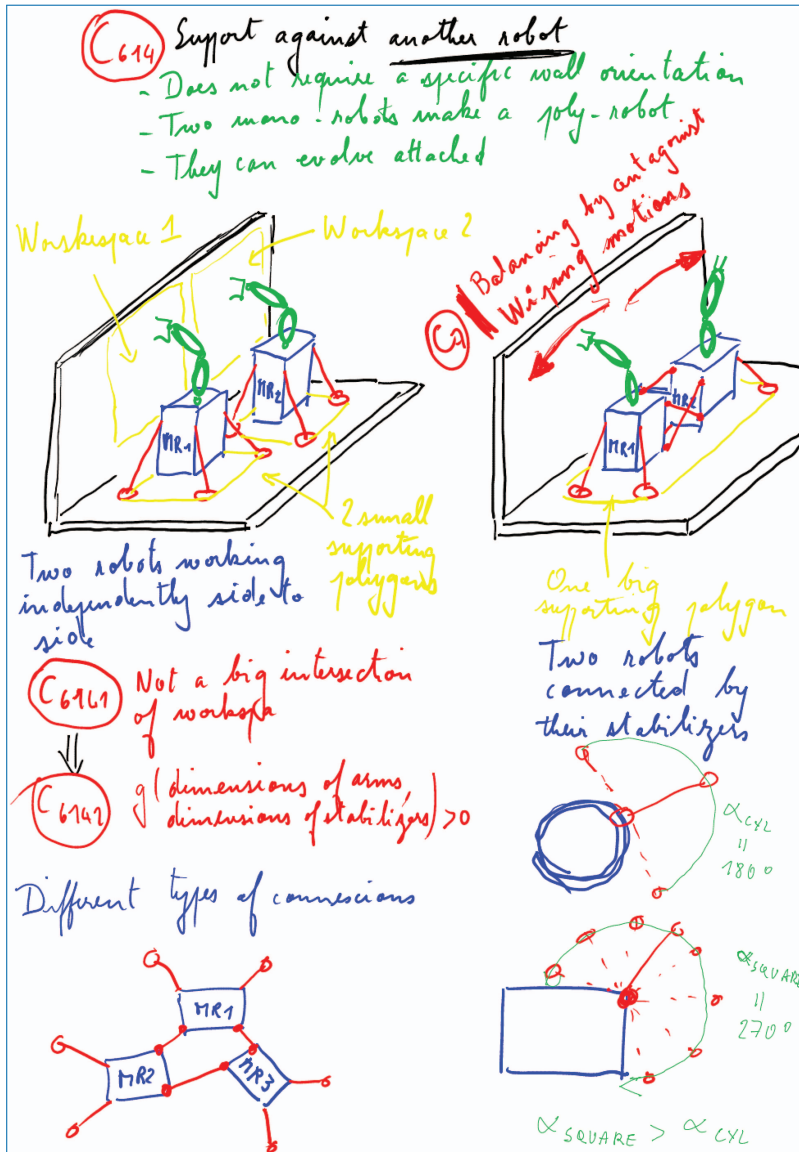 C614 Support against another robot
- Does not require a specific wall orientation
- Two mono-robots make a poly-robot
- They can evolve attached
Workspace 1
Workspace 2
MR1
MR2
2 small
supporting
polygons
Two robots working
independently side to
side
C7 Balancing by antagonist
Wiping motions
MR1
MR2
One big
supporting polygon
Two robots
connected by
their stabilizers
C6141 Not a big intersection
of workspa
⇓
C6142 g(dimensions of arms,
dimensions of stabilizers) > 0
α CYL
=
180°
Different types of connexions
MR1
MR2
MR3
α SQUARE
=
270°
α SQUARE > α CYL